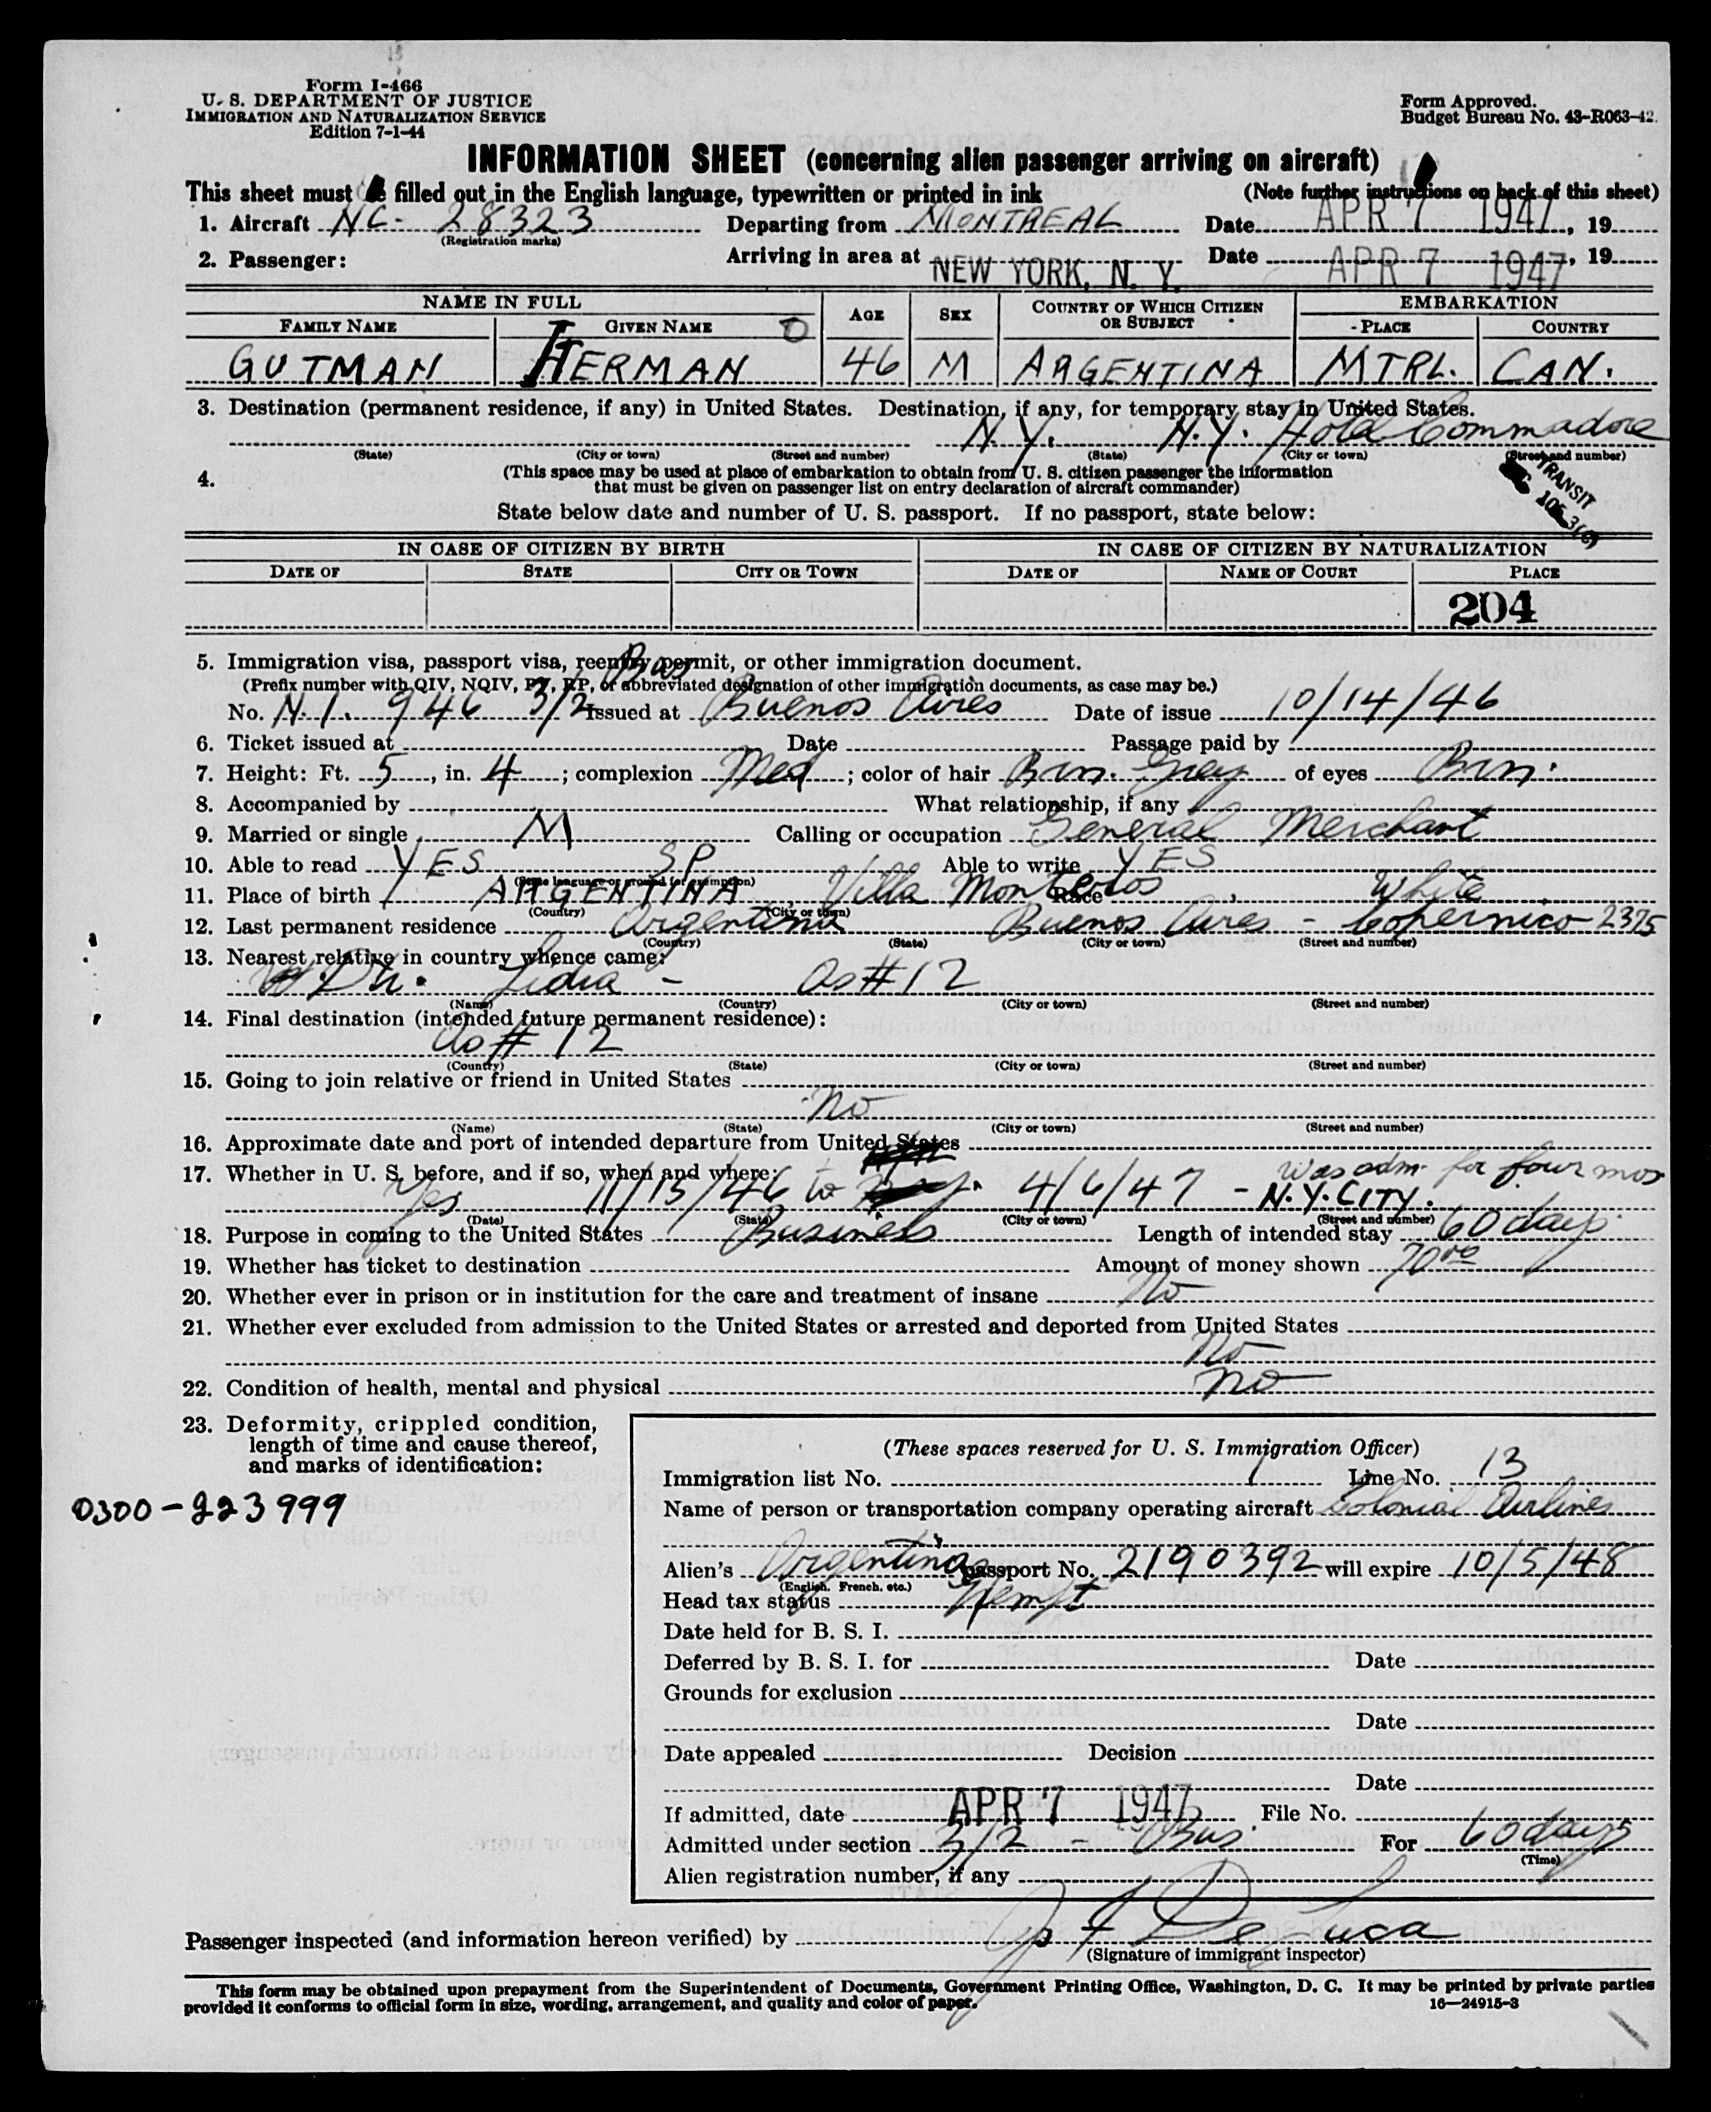 Form I-466
U. S. DEPARTMENT OF JUSTICE
IMMIGRATION AND NATURALIZATION SERVICE
Edition 7-1-44
Form Approved.
Budget Bureau No. 43-R063-42.
INFORMATION SHEET (concerning alien passenger arriving on aircraft)
This sheet must be filled out in the English language, typewritten or printed in ink (Note further instructions on back of this sheet)
1. Aircraft NC- 28323 Departing from MONTREAL Date APR 7 1947, 19
(Registration marks)
2. Passenger: Arriving in area at NEW YORK, N. Y. Date APR 7 1947, 19
NAME IN FULL AGE SEX COUNTRY OF WHICH CITIZEN OR SUBJECT EMBARKATION
FAMILY NAME GIVEN NAME PLACE COUNTRY
GUTMAN HERMAN 46 M ARGENTINA MTRL. CAN.
3. Destination (permanent residence, if any) in United States. Destination, if any, for temporary stay in United States.
N.Y. N.Y. Hotel Commadore
(State) (City or town) (Street and number) (State) (City or town) (Street and number)
4. (This space may be used at place of embarkation to obtain from U. S. citizen passenger the information
that must be given on passenger list on entry declaration of aircraft commander)
TRANSIT
State below date and number of U. S. passport. If no passport, state below:
IN CASE OF CITIZEN BY BIRTH IN CASE OF CITIZEN BY NATURALIZATION
DATE OF STATE CITY OR TOWN DATE OF NAME OF COURT PLACE
204
5. Immigration visa, passport visa, reentry permit, or other immigration document.
(Prefix number with QIV, NQIV, PV, RP, or abbreviated designation of other immigration documents, as case may be.)
Bus
No. N.I. 946 3/2 Issued at Buenos Aires Date of issue 10/14/46
6. Ticket issued at Date Passage paid by
7. Height: Ft. 5, in. 4; complexion Med; color of hair Brn. Grey of eyes Brn.
8. Accompanied by What relationship, if any
9. Married or single M Calling or occupation General Merchant
10. Able to read YES SP Able to write YES
(Name language or ground for exemption)
11. Place of birth ARGENTINA, Villa Race White
(Country) (City or town)
12. Last permanent residence Argentina Buenos Aires - Copernico 2375
(Country) (State) (City or town) (Street and number)
13. Nearest relative in country whence came:
Lidia - As #12
(Name) (Country) (City or town) (Street and number)
14. Final destination (intended future permanent residence):
As #12
(Country) (State) (City or town) (Street and number)
15. Going to join relative or friend in United States
No
(Name) (State) (City or town) (Street and number)
16. Approximate date and port of intended departure from United States
17. Whether in U. S. before, and if so, when and where: Was adm. for four mos
Yes 11/15/46 to 4/6/47 - N.Y. CITY.
(Date) (State) (City or town) (Street and number)
18. Purpose in coming to the United States Business Length of intended stay 60 days
19. Whether has ticket to destination Amount of money shown 70 00
20. Whether ever in prison or in institution for the care and treatment of insane No
21. Whether ever excluded from admission to the United States or arrested and deported from United States
No
22. Condition of health, mental and physical No
23. Deformity, crippled condition,
length of time and cause thereof,
and marks of identification:
0300-223999
(These spaces reserved for U. S. Immigration Officer)
Immigration list No. 1 Line No. 13
Name of person or transportation company operating aircraft Colonial Airlines
Alien's Argentina passport No. 2190392 will expire 10/5/48
(English. French, etc.)
Head tax status Xempt
Date held for B. S. I.
Deferred by B. S. I. for Date
Grounds for exclusion
Date
Date appealed Decision
Date
If admitted, date APR 7 1947 File No.
Admitted under section 3/2 - Bus. For 60 days
(Time)
Alien registration number, if any
Passenger inspected (and information hereon verified) by De Luca
(Signature of immigrant inspector)
This form may be obtained upon prepayment from the Superintendent of Documents, Government Printing Office, Washington, D. C. It may be printed by private parties
provided it conforms to official form in size, wording, arrangement, and quality and color of paper. 16—24915-3